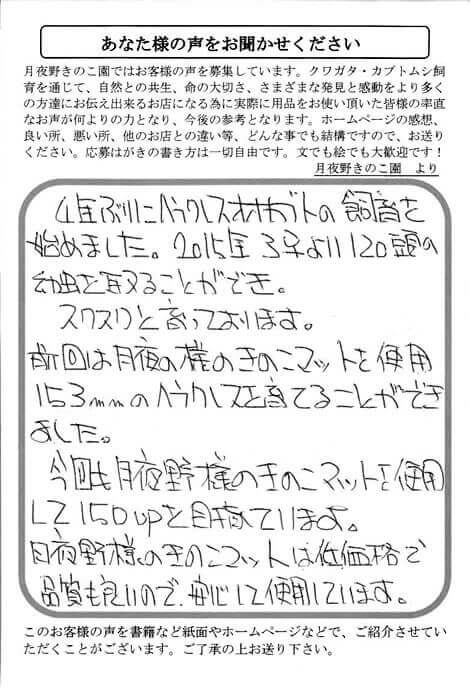 あなた様の声をお聞かせください
月夜野きのこ園ではお客様の声を募集しています。クワガタ・カブトムシ飼
育を通じて、自然との共生、命の大切さ、さまざまな発見と感動をより多く
の方達にお伝え出来るお店になる為に実際に用品をお使い頂いた皆様の率直
なお声が何よりの力となり、今後の参考となります。ホームページの感想、
良い所、悪い所、他のお店との違い等、どんな事でも結構ですので、お送り
ください。応募はがきの書き方は一切自由です。文でも絵でも大歓迎です！
月夜野きのこ園　より
4年ぶりにヘラクレスオオカブトの飼育を
始めました。2015年3早より120頭の
幼虫を取ることができ。
スクスクと育っております。
前回は月夜の様のきのこマットを使用
153mmのヘラクレスを育てることができ
ました。
今回も月夜野様のきのこマットを使用
して150upを目指ています。
月夜野様のきのこマットは低価格で
品質も良いので、安心して使用しています。
このお客様の声を書籍など紙面やホームページなどで、ご紹介させてい
ただくことがございます。ご了承の上お送り下さい。